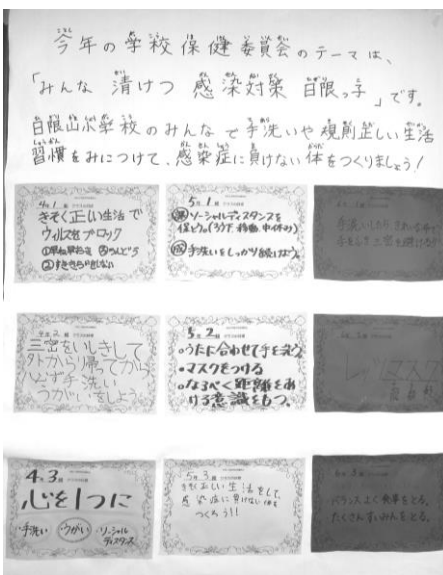 今年の学校保健委員会のテーマは、
「みんな 清けつ 感染対策 日限っ子」です。
日限山小学校のみんなで手洗いや規則正しい生活
習慣をみにつけて、感染症に負けない体をつくりましょう!
4年1組
きそく正しい生活で
ウィルスをブロック
①早ね早おき ③うんどう
②すききらいをしない
5年1組
ソーシャルディスタンスを
保とう。(ろう下、移動、中休み)
手洗いをしっかり続けよう。
手洗いしたら、きれいな
手をしき三密を避ける
4年2組
三密をいしきして
外から帰ってから
必ず手洗い
うがいをしよう
5年2組
・うたに合わせて手を洗う
・マスクをつける
・なるべく距離をあ
ける意識をもつ。
マスク
4年3組
心を1つに
・手洗い ・うがい ・ソーシャル
ディスタンス
5年3組
きそく正しい生活をして、
感染症に負けない体を
つくろう!!
バランスよく食事をとる。
たくさんすいみんをとる。